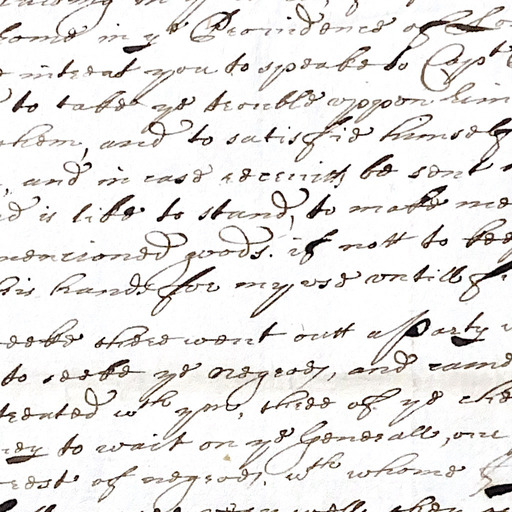 come in ye Providence of
intreat you to speake to Capt
to take ye trouble uppon him
them, and to satisfie himself
, and in case receiuts be sent
is like to stand, to make me
mencioned goods. if nott to kee
his hands for my vse vntill
weeke there went outt a party
to seeke ye negroes, and came
treated wth ym, three of ye che
to wait on ye Generall, our
rest of negroes, wth whome